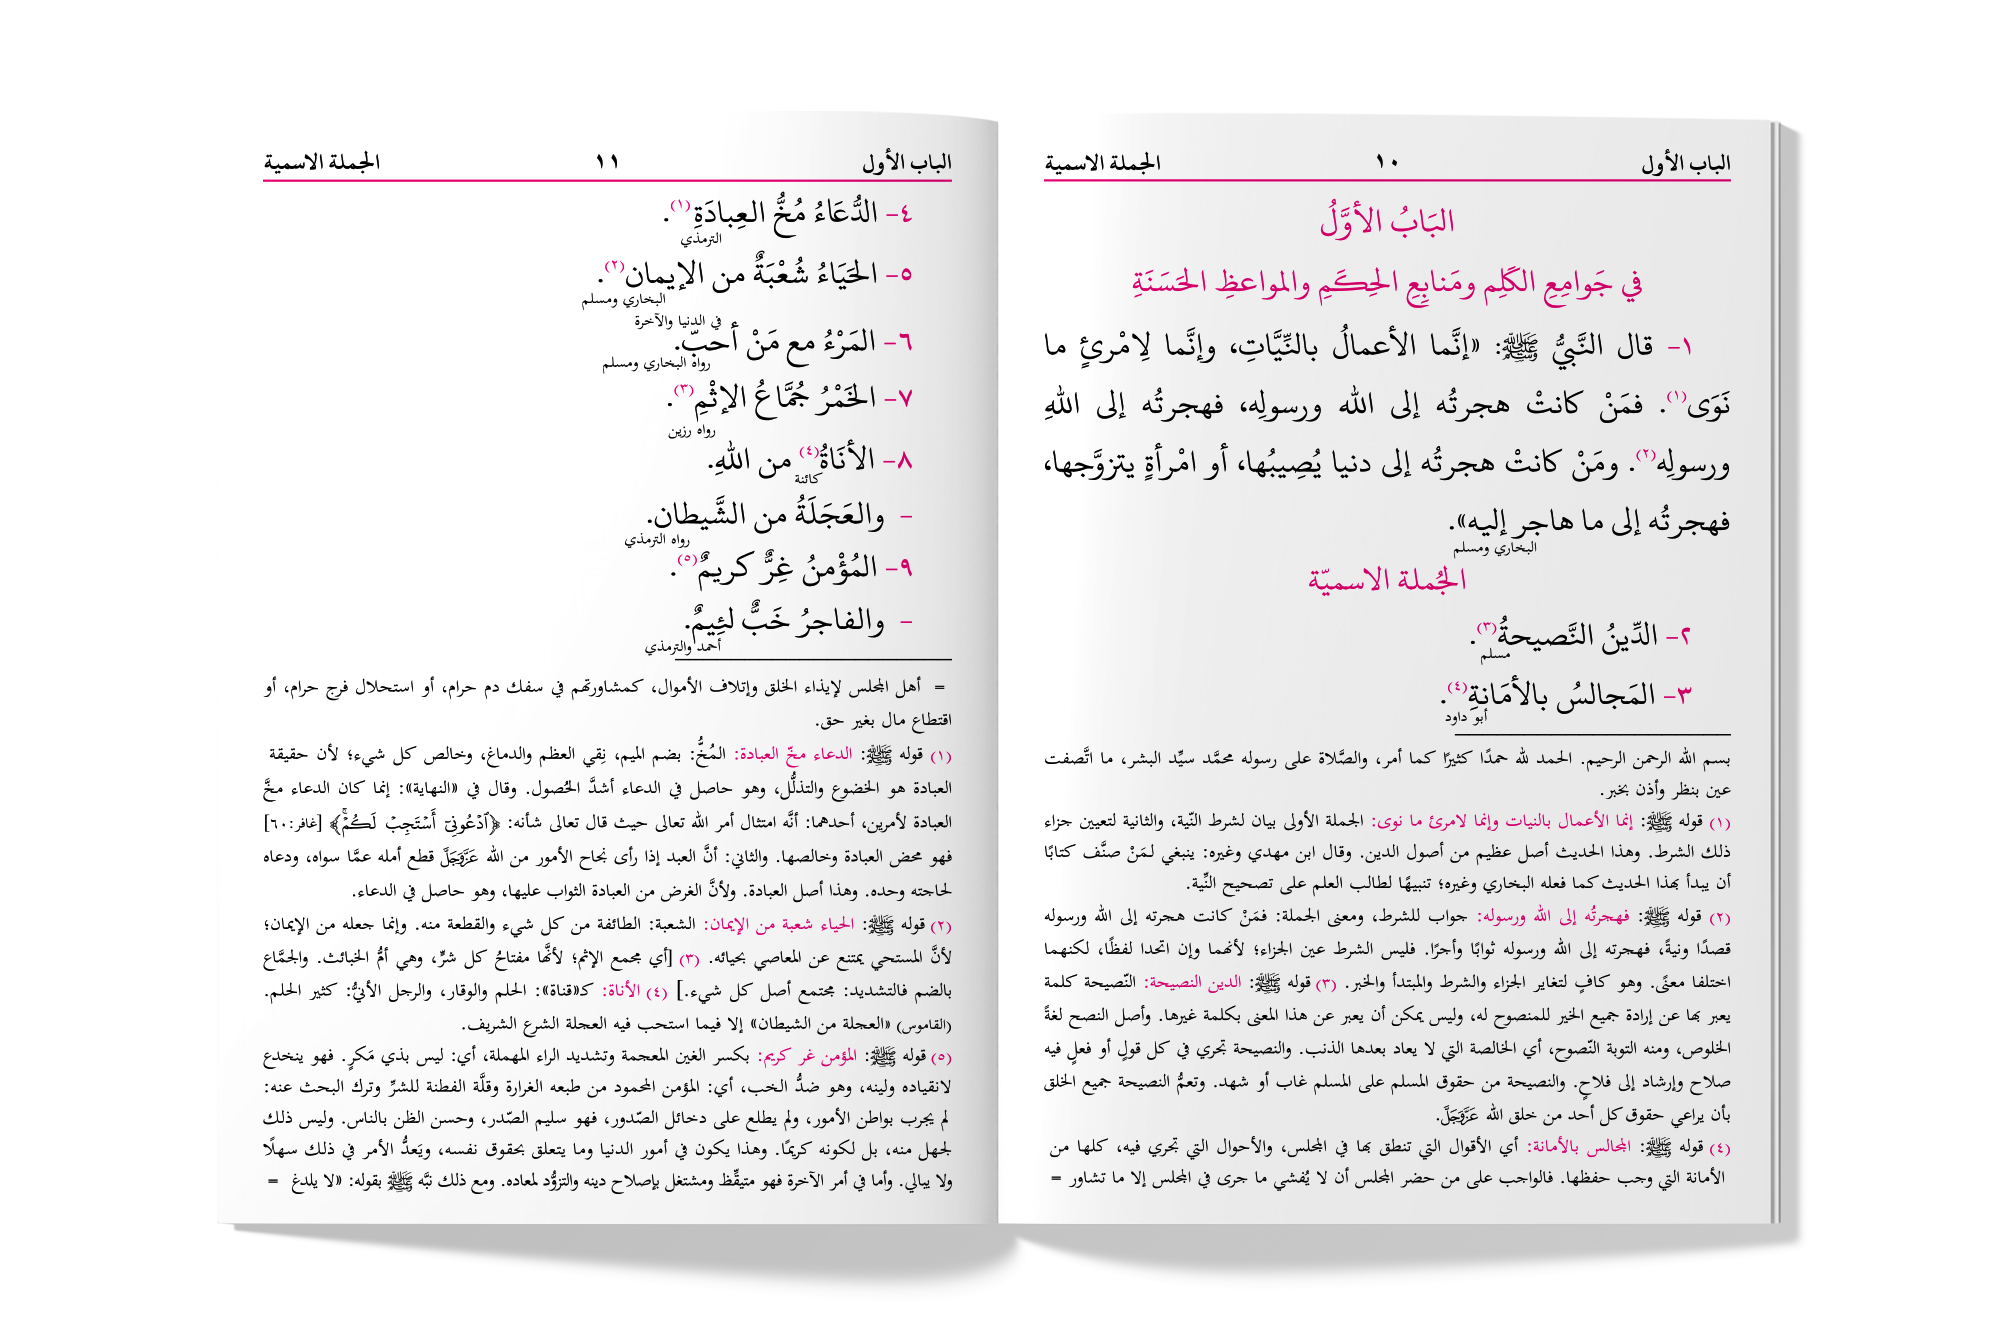 الباب الأول ١٠ الجملة الاسمية
البَابُ الأوَّلُ
في جَوامِعِ الكَلِم ومَنابِعِ الحِكَمِ والمواعظِ الحَسَنَةِ
١- قال النَّبيُّ ﷺ: «إنَّما الأعمالُ بالنِّيَّاتِ، وإنَّما لِامْرئٍ ما
نَوَى(١). فمَنْ كانتْ هجرتُه إلى الله ورسولِه، فهجرتُه إلى اللهِ
ورسولِه(٢). ومَنْ كانتْ هجرتُه إلى دنيا يُصِيبُها، أو امْرأةٍ يتزوَّجها،
فهجرتُه إلى ما هاجر إليه».
البخاري ومسلم
الجُملة الاسميّة
٢- الدِّينُ النَّصيحةُ(٣).
مسلم
٣- المَجالسُ بالأمَانةِ(٤).
أبو داود
بسم الله الرحمن الرحيم. الحمد لله حمدًا كثيرًا كما أمر، والصَّلاة على رسوله محمَّد سيِّد البشر، ما اتَّصفت
عين بنظر وأذن بخبر.
(١) قوله ﷺ: إنما الأعمال بالنيات وإنما لامرئ ما نوى: الجملة الأولى بيان لشرط النّية، والثانية لتعيين جزاء
ذلك الشرط. وهذا الحديث أصل عظيم من أصول الدين. وقال ابن مهدي وغيره: ينبغي لمَنْ صنَّف كتابًا
أن يبدأ بهذا الحديث كما فعله البخاري وغيره؛ تنبيهًا لطالب العلم على تصحيح النِّية.
(٢) قوله ﷺ: فهجرتُه إلى الله ورسوله: جواب للشرط، ومعنى الجملة: فمَنْ كانت هجرته إلى الله ورسوله
قصدًا ونيةً، فهجرته إلى الله ورسوله ثوابًا وأجرًا. فليس الشرط عين الجزاء؛ لأنهما وإن اتحدا لفظًا، لكنهما
اختلفا معنًى. وهو كافٍ لتغاير الجزاء والشرط والمبتدأ والخبر. (٣) قوله ﷺ: الدين النصيحة: النّصيحة كلمة
يعبر بها عن إرادة جميع الخير للمنصوح له، وليس يمكن أن يعبر عن هذا المعنى بكلمة غيرها. وأصل النصح لغةً
الخلوص، ومنه التوبة النّصوح، أي الخالصة التي لا يعاد بعدها الذنب. والنصيحة تجري في كل قولٍ أو فعلٍ فيه
صلاح وإرشاد إلى فلاحٍ. والنصيحة من حقوق المسلم على المسلم غاب أو شهد. وتعمُّ النصيحة جميع الخلق
بأن يراعي حقوق كل أحد من خلق الله عَزَّوَجَلَّ.
(٤) قوله ﷺ: المجالس بالأمانة: أي الأقوال التي تنطق بها في المجلس، والأحوال التي تجري فيه، كلها من
الأمانة التي وجب حفظها. فالواجب على من حضر المجلس أن لا يُفشي ما جرى في المجلس إلا ما تشاور =
الباب الأول ١١ الجملة الاسمية
٤- الدُّعَاءُ مُخُّ العِبادَةِ(١).
الترمذي
٥- الحَيَاءُ شُعْبَةٌ من الإيمان(٢).
البخاري ومسلم
في الدنيا والآخرة
٦- المَرْءُ مع مَنْ أحبّ.
رواه البخاري ومسلم
٧- الخَمْرُ جُمَّاعُ الإثْمِ(٣).
رواه رزين
٨- الأنَاةُ(٤) من اللهِ.
كائنة
- والعَجَلَةُ من الشَّيطان.
رواه الترمذي
٩- المُؤْمنُ غِرٌّ كريمٌ(٥).
- والفاجرُ خَبٌّ لئِيمٌ.
أحمد والترمذي
= أهل المجلس لإيذاء الخلق وإتلاف الأموال، كمشاورتهم في سفك دم حرام، أو استحلال فرج حرام، أو
اقتطاع مال بغير حق.
(١) قوله ﷺ: الدعاء مخّ العبادة: المُخُّ: بضم الميم، نِقي العظم والدماغ، وخالص كل شيء؛ لأن حقيقة
العبادة هو الخضوع والتذلُّل، وهو حاصل في الدعاء أشدَّ الحُصول. وقال في «النهاية»: إنما كان الدعاء مخَّ
العبادة لأمرين، أحدهما: أنَّه امتثال أمر الله تعالى حيث قال تعالى شأنه: ﴿ٱدْعُونِيٓ أَسْتَجِبْ لَكُمْۚ﴾ [غافر:٦٠]
فهو محض العبادة وخالصها. والثاني: أنَّ العبد إذا رأى نجاح الأمور من الله عَزَّوَجَلَّ قطع أمله عمَّا سواه، ودعاه
لحاجته وحده. وهذا أصل العبادة. ولأنَّ الغرض من العبادة الثواب عليها، وهو حاصل في الدعاء.
(٢) قوله ﷺ: الحياء شعبة من الإيمان: الشعبة: الطائفة من كل شيء والقطعة منه. وإنما جعله من الإيمان؛
لأنَّ المستحي يمتنع عن المعاصي بحيائه. (٣) [أي مجمع الإثم؛ لأنَّها مفتاحُ كل شرٍّ، وهي أمُّ الخبائث. والجمَّاع
بالضم فالتشديد: مجتمع أصل كل شيء.] (٤) الأناة: كـ«قناة»: الحلم والوقار، والرجل الأنيُّ: كثير الحلم.
(القاموس) «العجلة من الشيطان» إلا فيما استحب فيه العجلة الشرع الشريف.
(٥) قوله ﷺ: المؤمن غر كريم: بكسر الغين المعجمة وتشديد الراء المهملة، أي: ليس بذي مَكرٍ. فهو ينخدع
لانقياده ولينه، وهو ضدُّ الخب، أي: المؤمن المحمود من طبعه الغرارة وقلَّة الفطنة للشرِّ وترك البحث عنه:
لم يجرب بواطن الأمور، ولم يطلع على دخائل الصّدور، فهو سليم الصّدر، وحسن الظن بالناس. وليس ذلك
لجهل منه، بل لكونه كريمًا. وهذا يكون في أمور الدنيا وما يتعلق بحقوق نفسه، ويَعدُّ الأمر في ذلك سهلًا
ولا يبالي. وأما في أمر الآخرة فهو متيقِّظ ومشتغل بإصلاح دينه والتزوُّد لمعاده. ومع ذلك نبَّه ﷺ بقوله: «لا يلدغ =